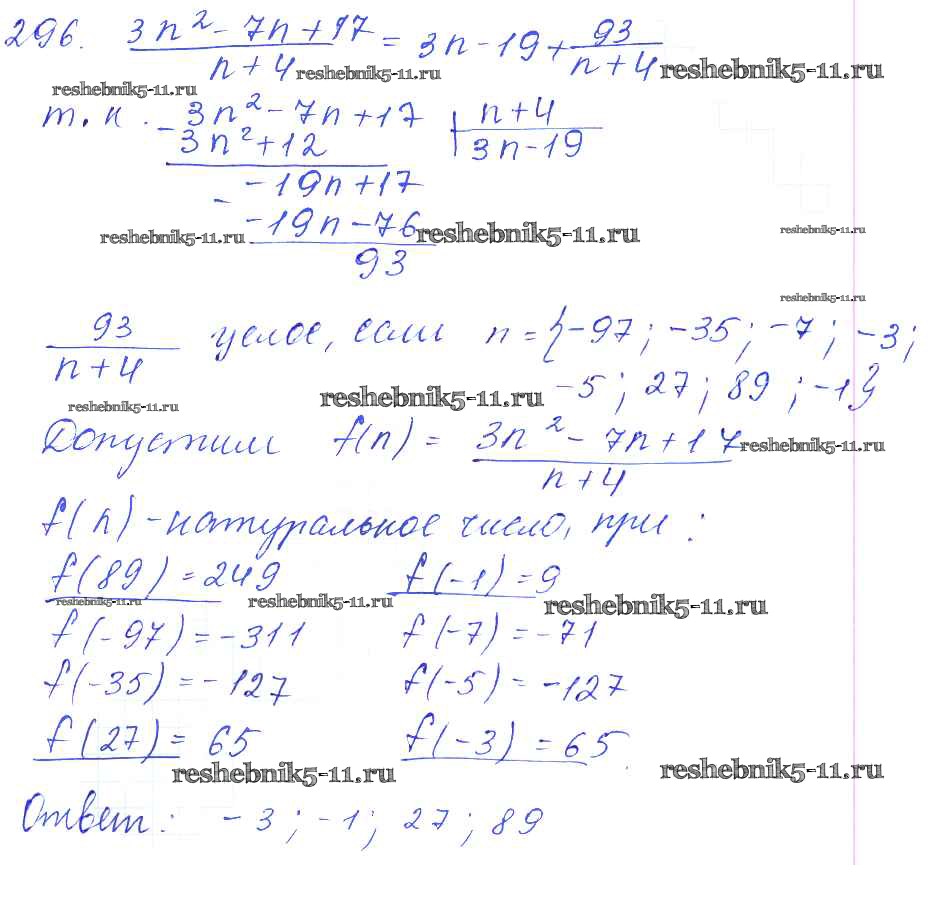 296. (3n² - 7n + 17)/(n+4) = 3n - 19 + 93/(n+4)
reshebnik5-11.ru reshebnik5-11.ru reshebnik5-11.ru
т.к. - 3n² - 7n + 17 | n+4
3n² + 12 | 3n - 19
- -19n + 17
-19n - 76
reshebnik5-11.ru reshebnik5-11.ru reshebnik5-11.ru
93
reshebnik5-11.ru
93/(n+4) целое, если n = {-97; -35; -7; -3;
-5; 27; 89; -1}
reshebnik5-11.ru reshebnik5-11.ru
Допустим f(n) = (3n² - 7n + 17)/(n+4)
reshebnik5-11.ru
f(n) - натуральное число, при:
f(89) = 249 f(-1) = 9
reshebnik5-11.ru reshebnik5-11.ru reshebnik5-11.ru
f(-97) = -311 f(-7) = -71
f(-35) = -127 f(-5) = -127
f(27) = 65 f(-3) = 65.
reshebnik5-11.ru reshebnik5-11.ru
Ответ: -3; -1; 27; 89